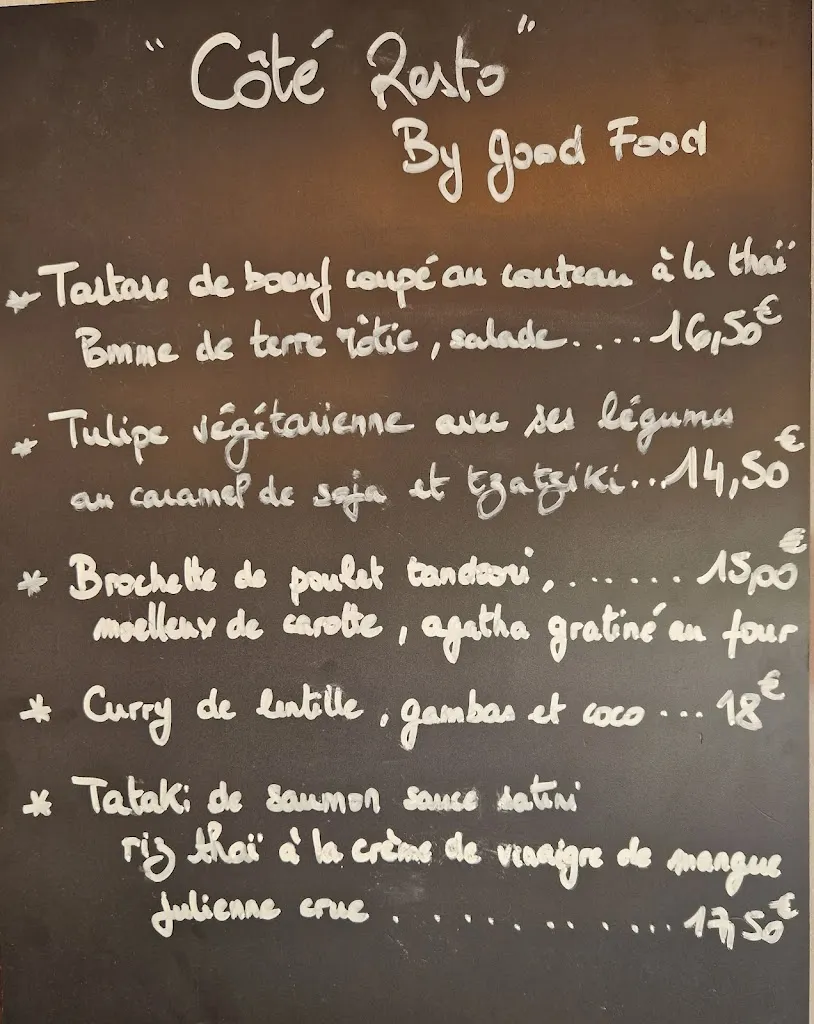 "Côté Resto"
By Good Food
* Tartare de boeuf coupé au couteau à la thaï
Pomme de terre rôtie, salade.....16,50€
* Tulipe végétarienne avec ses légumes
au caramel de soja et tzatziki...14,50€
* Brochette de poulet tandoori,.......15,00€
moelleux de carotte, agatha gratiné au four
* Curry de lentille, gambas et coco...18€
* Tataki de saumon sauce
riz thaï à la crème de vinaigre de mangue
julienne crue............17,50€